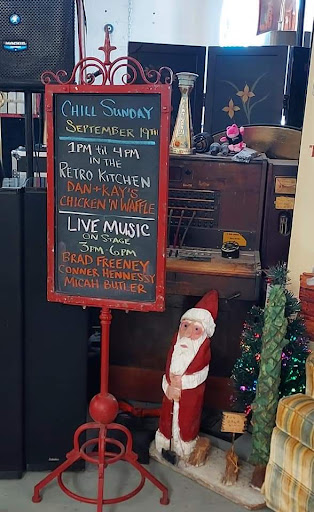 CHILL SUNDAY
SEPTEMBER 19TH
1PM TIL 4PM
IN THE
RETRO KITCHEN
DAN + KAY'S
CHICKEN 'N WAFFLE
LIVE MUSIC
ON STAGE
3PM-6PM
BRAD FREENEY
CONNER HENNESSY
MICAH BUTLER